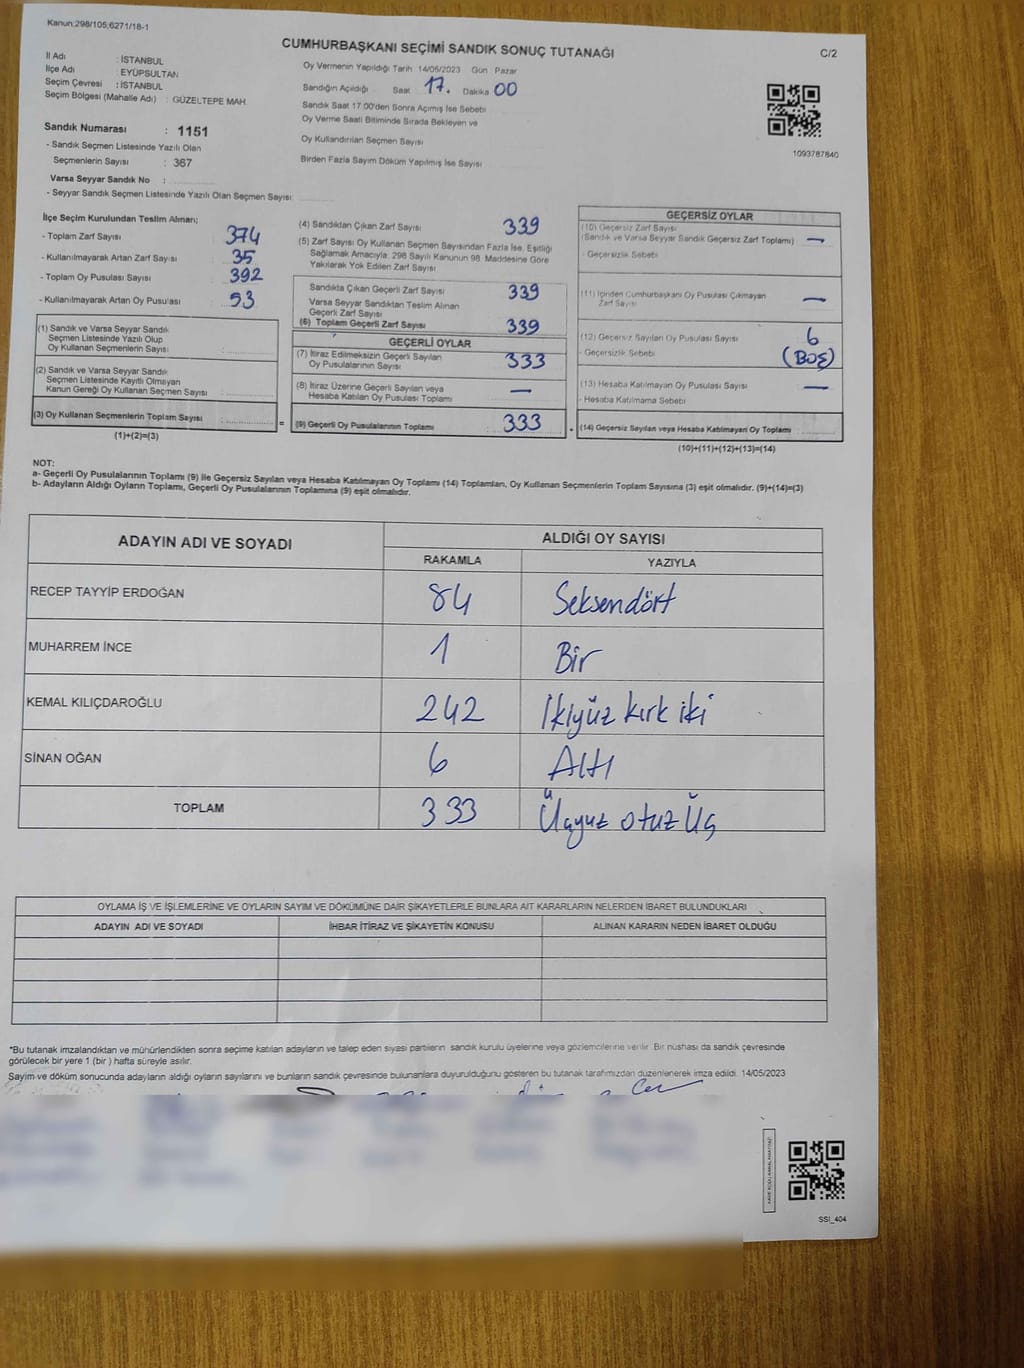 Kanun:298/105;6271/18-1
CUMHURBAŞKANI SEÇİMİ SANDIK SONUÇ TUTANAĞI
C/2
İl Adı : İSTANBUL
İlçe Adı : EYÜPSULTAN
Seçim Çevresi : İSTANBUL
Seçim Bölgesi (Mahalle Adı) : GÜZELTEPE MAH.
Sandık Numarası : 1151
- Sandık Seçmen Listesinde Yazılı Olan
Seçmenlerin Sayısı : 367
Varsa Seyyar Sandık No :
- Seyyar Sandık Seçmen Listesinde Yazılı Olan Seçmen Sayısı:
Oy Vermenin Yapıldığı Tarih :14/05/2023 Gün : Pazar
Sandığın Açıldığı : Saat 17. Dakika 00
Sandık Saat 17:00'den Sonra Açımış İse Sebebi
Oy Verme Saati Bitiminde Sırada Bekleyen ve
Oy Kullandırılan Seçmen Sayısı
Birden Fazla Sayım Döküm Yapılmış İse Sayısı
1093787840
İlçe Seçim Kurulundan Teslim Alınan;
- Toplam Zarf Sayısı : 374
- Kullanılmayarak Artan Zarf Sayısı : 35
- Toplam Oy Pusulası Sayısı : 392
- Kullanılmayarak Artan Oy Pusulası : 53
(1) Sandık ve Varsa Seyyar Sandık
Seçmen Listesinde Yazılı Olup
Oy Kullanan Seçmenlerin Sayısı :
(2) Sandık ve Varsa Seyyar Sandık
Seçmen Listesinde Kayıtlı Olmayan
Kanun Gereği Oy Kullanan Seçmen Sayısı :
(3) Oy Kullanan Seçmenlerin Toplam Sayısı :
(1)+(2)=(3)
=
(4) Sandıktan Çıkan Zarf Sayısı 339
(5) Zarf Sayısı Oy Kullanan Seçmen Sayısından Fazla İse, Eşitliği
Sağlamak Amacıyla; 298 Sayılı Kanunun 98. Maddesine Göre
Yakılarak Yok Edilen Zarf Sayısı
Sandıkta Çıkan Geçerli Zarf Sayısı 339
Varsa Seyyar Sandıktan Teslim Alınan
Geçerli Zarf Sayısı
(6) Toplam Geçerli Zarf Sayısı 339
GEÇERLİ OYLAR
(7) İtiraz Edilmeksizin Geçerli Sayılan
Oy Pusulalarının Sayısı 333
(8) İtiraz Üzerine Geçerli Sayılan veya
Hesaba Katılan Oy Pusulası Toplamı —
(9) Geçerli Oy Pusulalarının Toplamı 333
GEÇERSİZ OYLAR
(10) Geçersiz Zarf Sayısı
(Sandık ve Varsa Seyyar Sandık Geçersiz Zarf Toplamı) —
- Geçersizlik Sebebi
(11) İçinden Cumhurbaşkanı Oy Pusulası Çıkmayan
Zarf Sayısı —
(12) Geçersiz Sayılan Oy Pusulası Sayısı 6
- Geçersizlik Sebebi (BOŞ)
(13) Hesaba Katılmayan Oy Pusulası Sayısı —
- Hesaba Katılmama Sebebi
(14) Geçersiz Sayılan veya Hesaba Katılmayan Oy Toplamı
(10)+(11)+(12)+(13)=(14)
NOT:
a- Geçerli Oy Pusulalarının Toplamı (9) ile Geçersiz Sayılan veya Hesaba Katılmayan Oy Toplamı (14) Toplamları, Oy Kullanan Seçmenlerin Toplam Sayısına (3) eşit olmalıdır. (9)+(14)=(3)
b- Adayların Aldığı Oyların Toplamı, Geçerli Oy Pusulalarının Toplamına (9) eşit olmalıdır.
ADAYIN ADI VE SOYADI ALDIĞI OY SAYISI
RAKAMLA YAZIYLA
RECEP TAYYİP ERDOĞAN 84 Seksendört
MUHARREM İNCE 1 Bir
KEMAL KILIÇDAROĞLU 242 İkiyüz kırk iki
SİNAN OĞAN 6 Altı
TOPLAM 333 Üçyüz otuz Üç
OYLAMA İŞ VE İŞLEMLERİNE VE OYLARIN SAYIM VE DÖKÜMÜNE DAİR ŞİKAYETLERLE BUNLARA AİT KARARLARIN NELERDEN İBARET BULUNDUKLARI
ADAYIN ADI VE SOYADI İHBAR İTİRAZ VE ŞİKAYETİN KONUSU ALINAN KARARIN NEDEN İBARET OLDUĞU
*Bu tutanak imzalandıktan ve mühürlendikten sonra seçime katılan adayların ve talep eden siyasi partilerin sandık kurulu üyelerine veya gözlemcilerine verilir. Bir nüshası da sandık çevresinde
görülecek bir yere 1 (bir) hafta süreyle asılır.
Sayım ve döküm sonucunda adayların aldığı oyların sayılarını ve bunların sandık çevresinde bulunanlara duyurulduğunu gösteren bu tutanak tarafımızdan düzenlenerek imza edildi. 14/05/2023
SSI_404